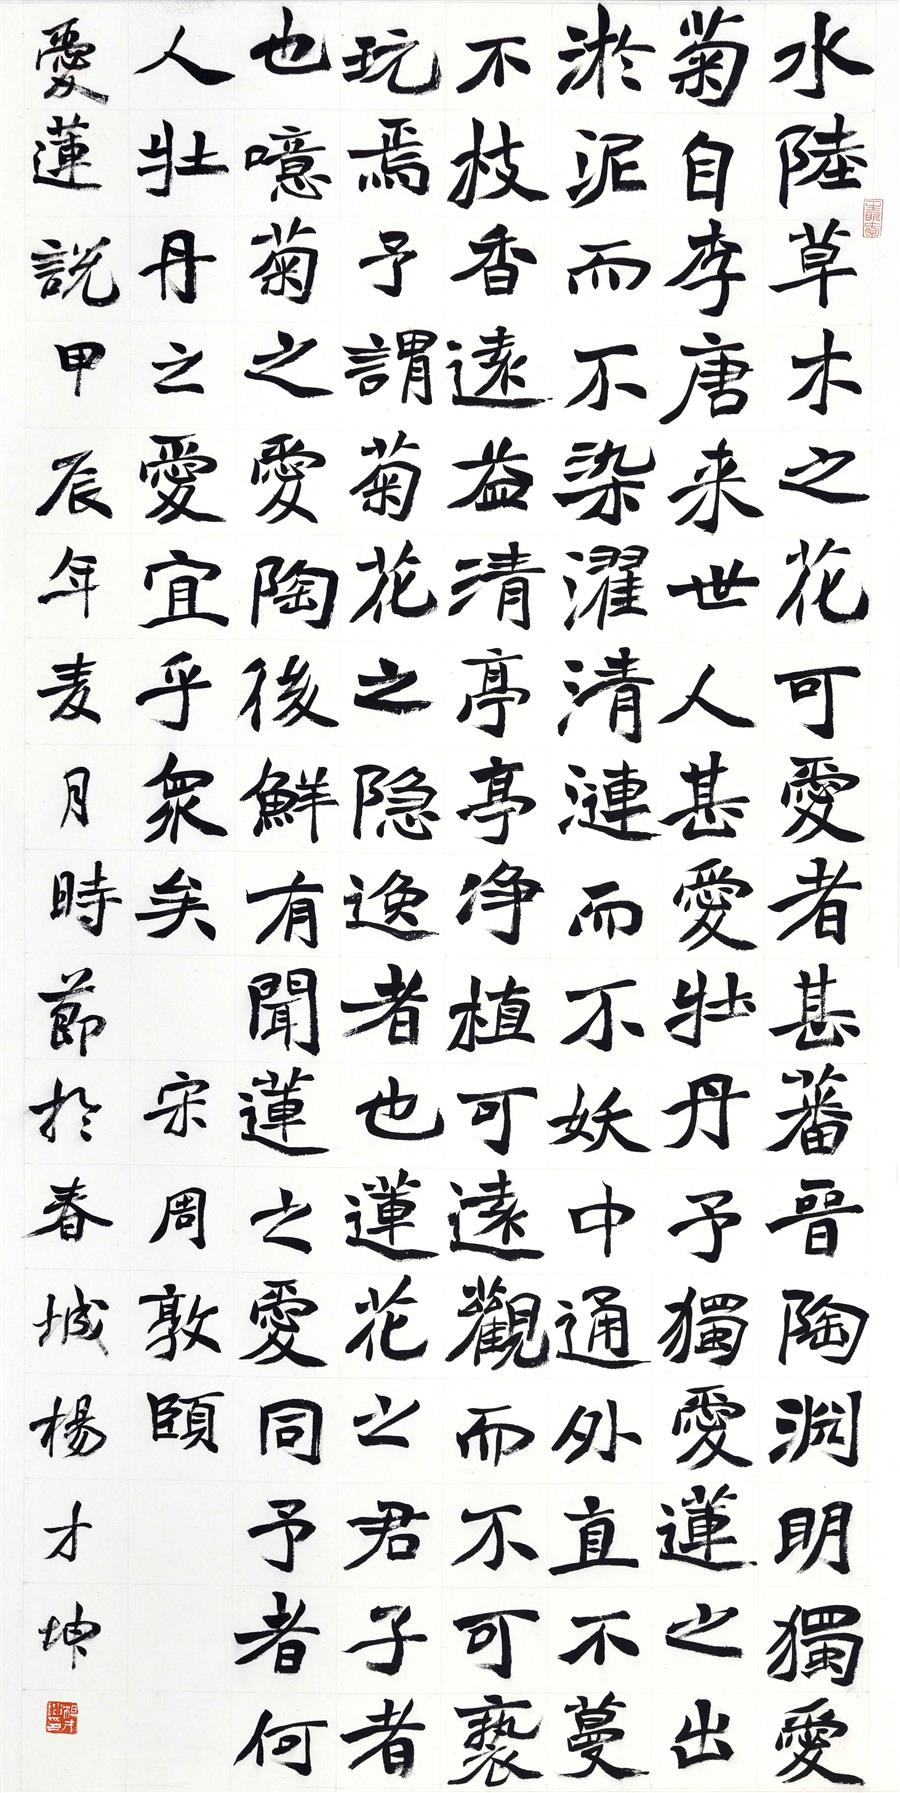 水陸草木之花可愛者甚蕃晉陶淵明獨愛
菊自李唐来世人甚愛牡丹予獨愛蓮之出
淤泥而不染濯清漣而不妖中通外直不蔓
不枝香遠益清亭亭净植可遠觀而不可褻
玩焉予謂菊花之隐逸者也蓮花之君子者
也噫菊之愛陶後鮮有聞蓮之愛同予者何
人牡丹之愛宜乎衆矣 宋周敦頤
愛蓮說甲辰年麦月時節於春城楊才坤